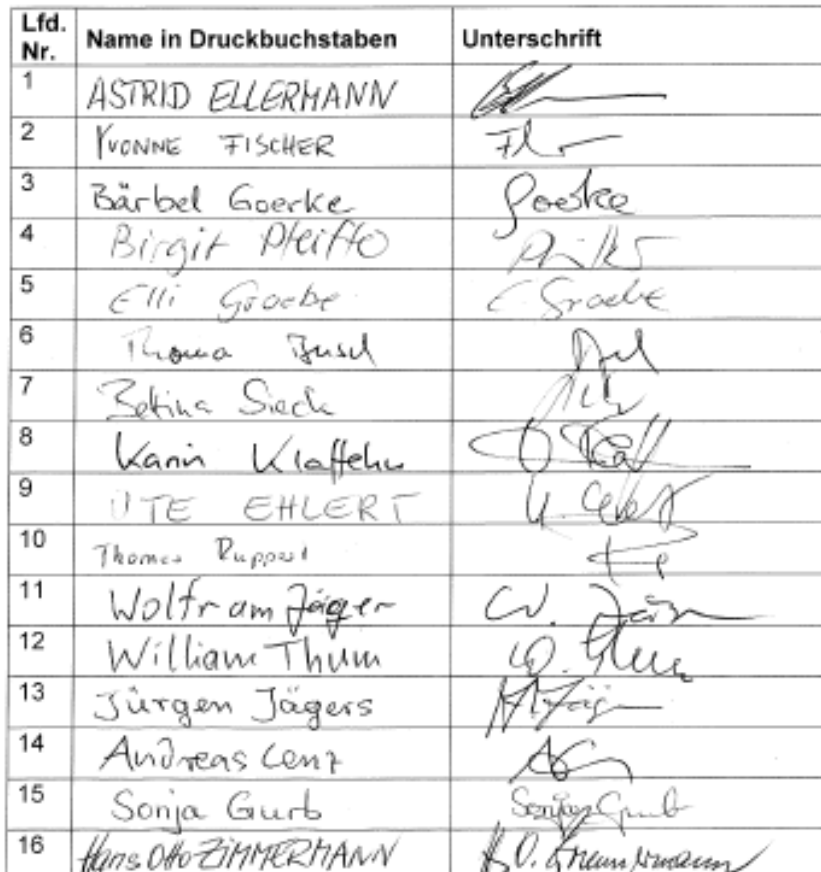 Lfd. Nr. Name in Druckbuchstaben Unterschrift
1 ASTRID ELLERMANN
2 YVONNE FISCHER
3 Bärbel Goerke Goerke
4 Birgit Pfeiffo
5 Elli Groebe E Groebe
6 Thoma
7 Bettina Sieck
8 Karin Klaffehn
9 UTE EHLERT
10 Thomas Ruppert
11 Wolfram Jäger W. Jäger
12 William Thum W. Thum
13 Jürgen Jägers
14 Andreas Lenz
15 Sonja Gurb Sonja Gurb
16 Hans Otto ZIMMERMANN H.O. Zimmermann